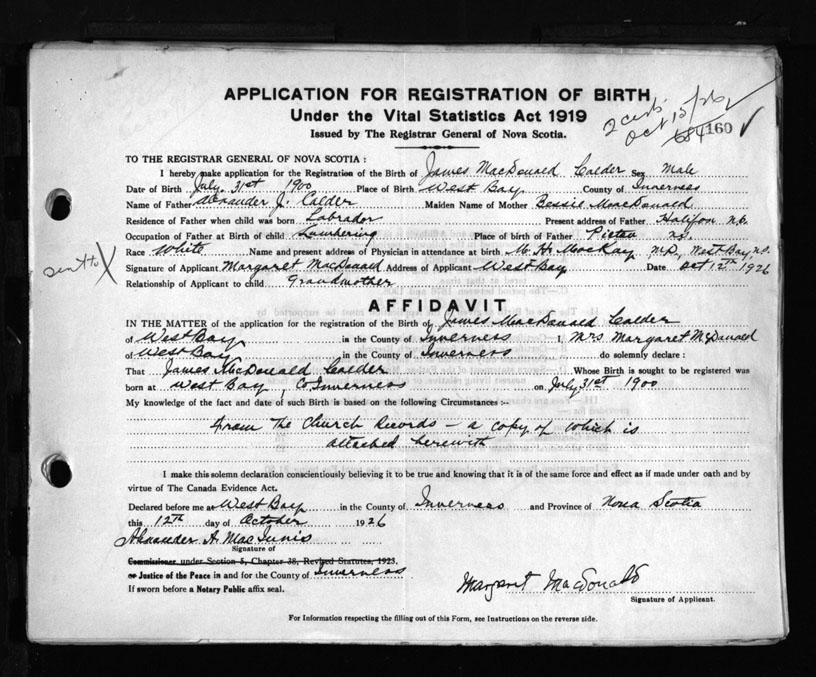 APPLICATION FOR REGISTRATION OF BIRTH
Under the Vital Statistics Act 1919
Issued by The Registrar General of Nova Scotia.
2 certs. Oct 15/26
684 160
TO THE REGISTRAR GENERAL OF NOVA SCOTIA :
I hereby make application for the Registration of the Birth of James MacDonald Calder Sex Male
Date of Birth July. 31st 1900 Place of Birth West Bay County of Inverness
Name of Father Alexander J. Calder Maiden Name of Mother Bessie MacDonald
Residence of Father when child was born Labrador Present address of Father Halifax N.S.
Occupation of Father at Birth of child Lumbering Place of birth of Father Pictou N.S.
Race White Name and present address of Physician in attendance at birth M. H. MacKay, M.D, West Bay, N.S.
Signature of Applicant Margaret MacDonald Address of Applicant West Bay Date Oct 12th 1926
Relationship of Applicant to child Grandmother
AFFIDAVIT
IN THE MATTER of the application for the registration of the Birth of James MacDonald Calder
of West Bay in the County of Inverness I, Mrs. Margaret McDonald
of West Bay in the County of Inverness do solemnly declare :
That James McDonald Calder Whose Birth is sought to be registered was
born at West Bay, Co Inverness on July 31st 1900
My knowledge of the fact and date of such Birth is based on the following Circumstances :-
From The Church Records - a copy of which is
attached herewith
I make this solemn declaration conscientiously believing it to be true and knowing that it is of the same force and effect as if made under oath and by
virtue of The Canada Evidence Act.
Declared before me at West Bay in the County of Inverness and Province of Nova Scotia
this 12th day of October 1926
Alexander A. MacInnis
Signature of
Commissioner under Section 5, Chapter 38, Revised Statutes, 1923.
or Justice of the Peace in and for the County of Inverness
If sworn before a Notary Public affix seal.
Margaret MacDonald
Signature of Applicant.
For Information respecting the filling out of this Form, see Instructions on the reverse side.